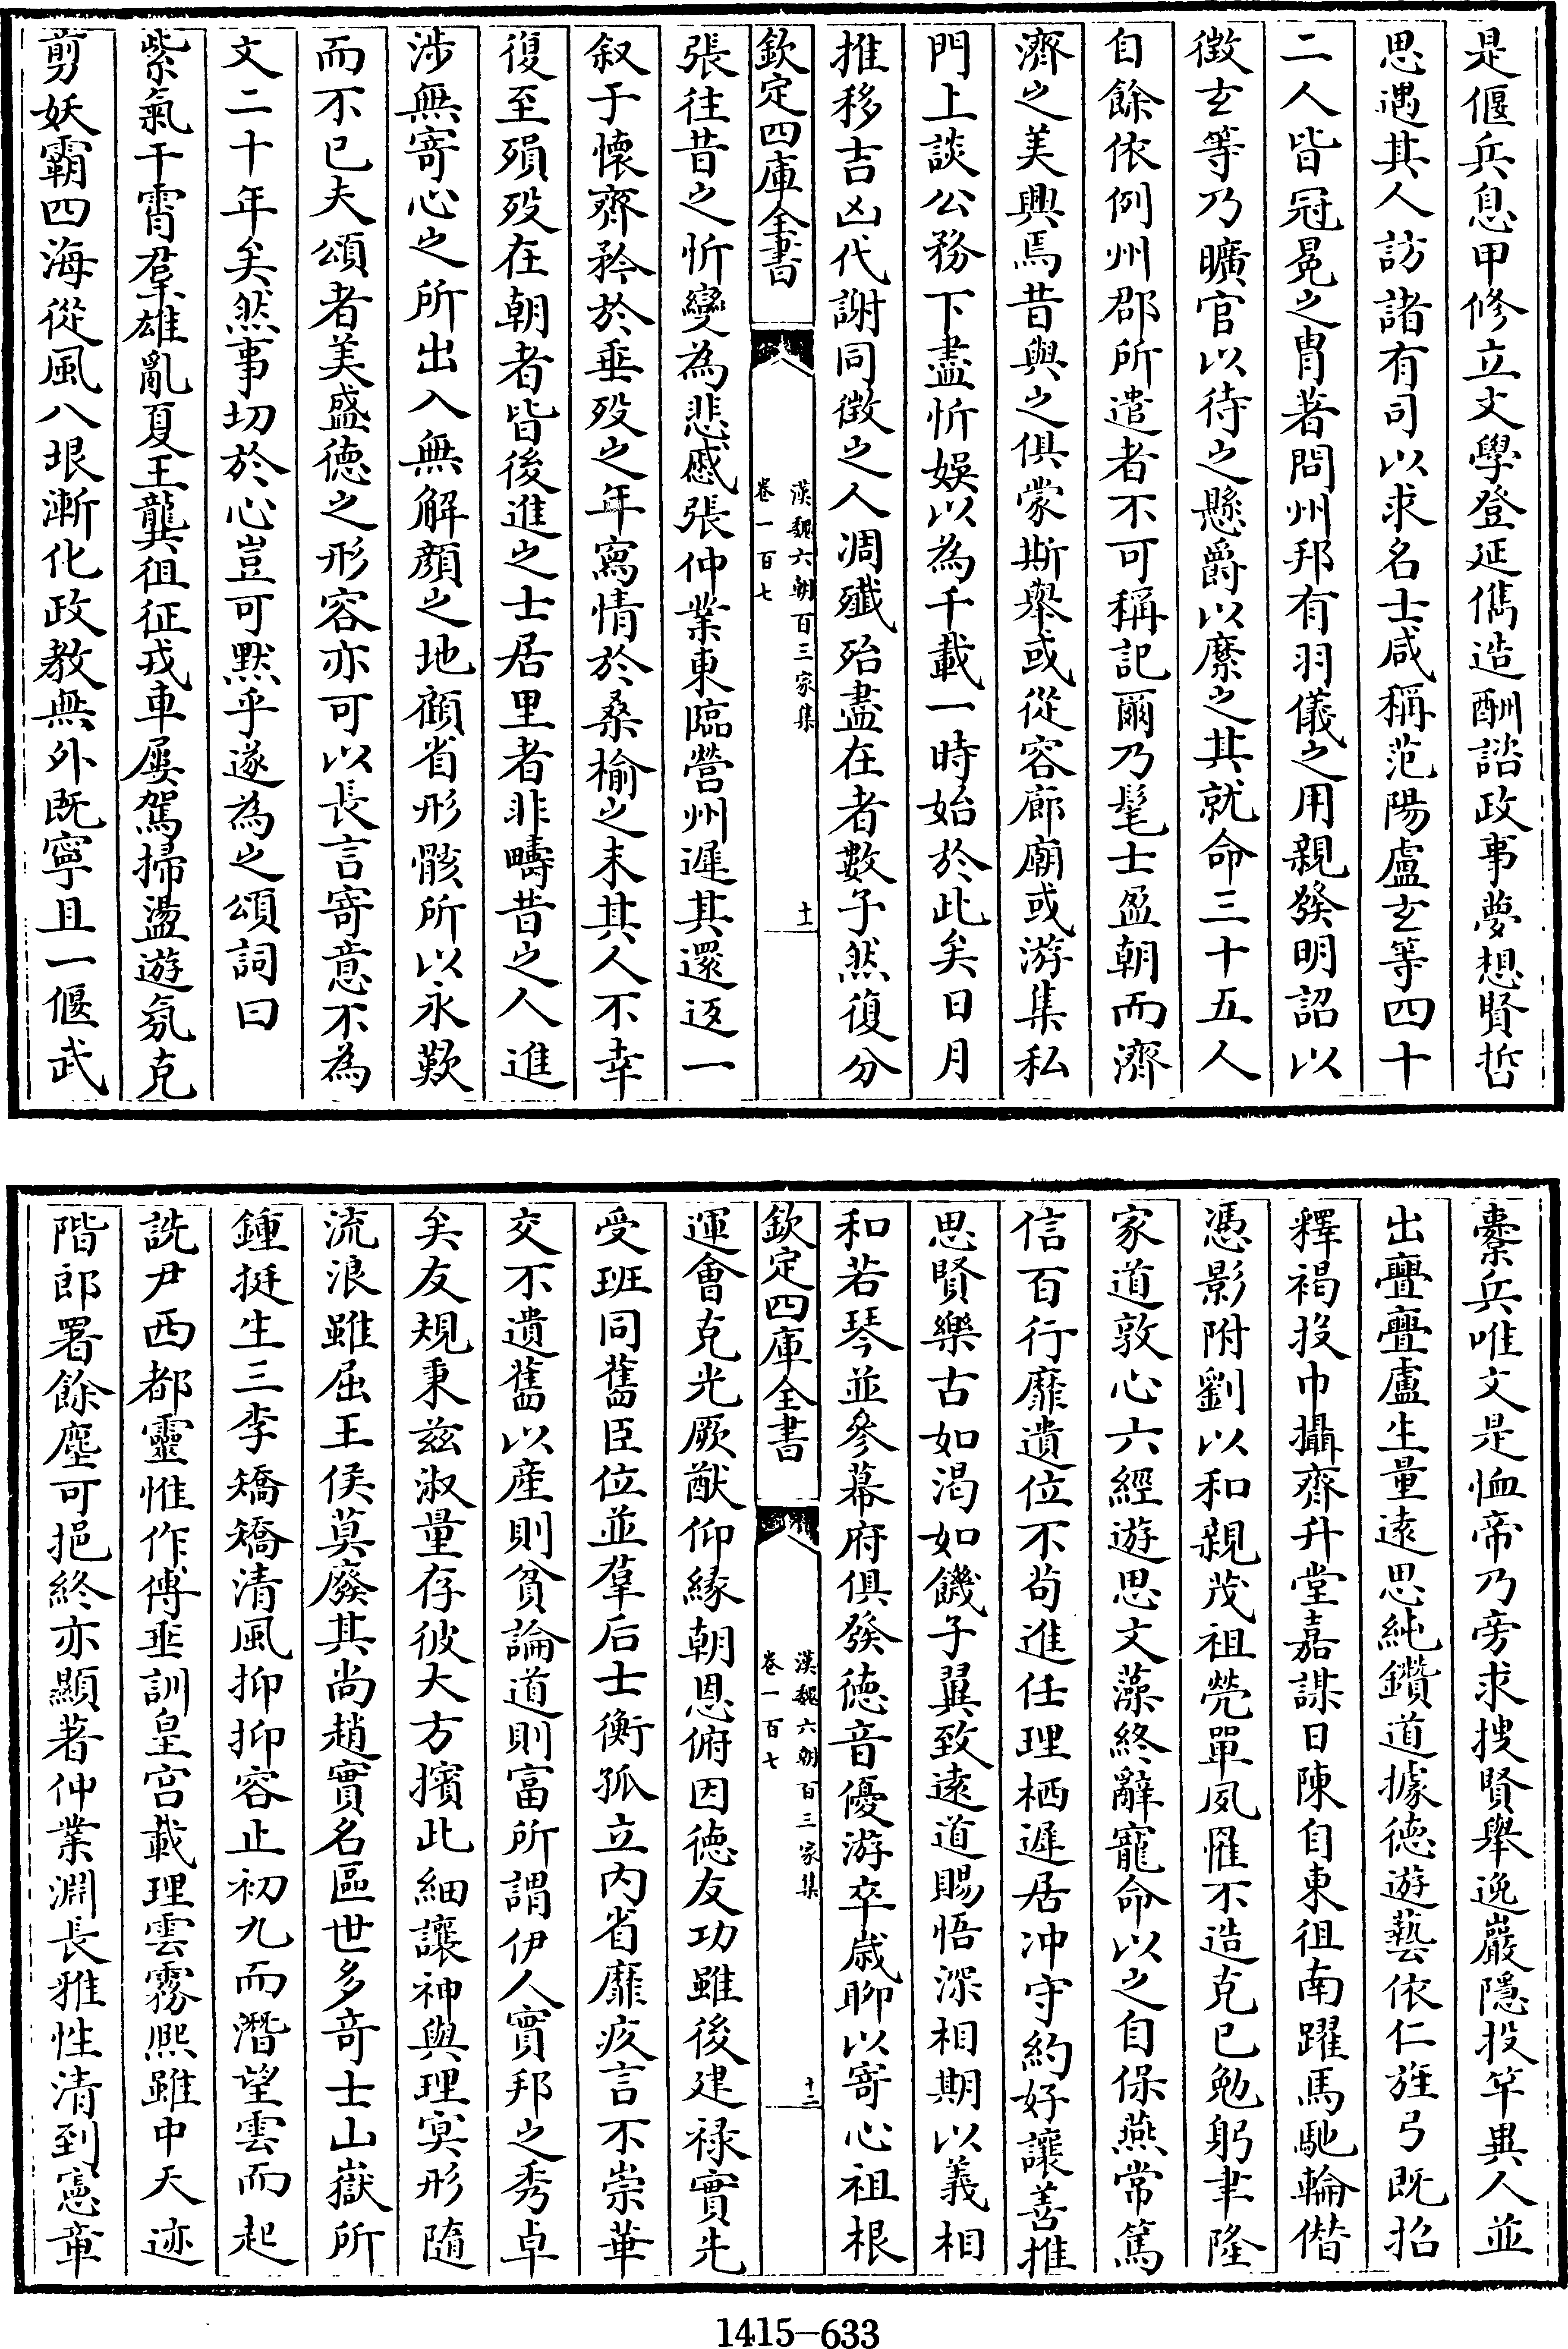 是偃兵息甲修立文學登延儁造酬諮政事夢想賢哲
思遇其人訪諸有司以求名士咸稱范陽盧玄等四十
二人皆冠冕之胄著問州邦有羽儀之用親發明詔以
徴玄等乃曠官以待之懸爵以縻之其就命三十五人
自餘依例州郡所遣者不可稱記爾乃髦士盈朝而濟
濟之美興焉昔與之俱蒙斯舉或從容廊廟或游集私
門上談公務下盡忻娛以為千載一時始於此矣日月
推移吉凶代謝同徴之人凋殲殆盡在者數子然復分
欽定四庫全書
漢魏六朝百三家集
卷一百七
十一
張往昔之忻變為悲慼張仲業東臨營州遲其還返一
叙于懷齊矜於垂殁之年寫情於桑榆之末其人不幸
復至殞殁在朝者皆後進之士居里者非疇昔之人進
涉無寄心之所出入無解顔之地顧省形骸所以永歎
而不已夫頌者美盛徳之形容亦可以長言寄意不為
文二十年矣然事切於心豈可默乎遂為之頌詞曰
紫氣干霄羣雄亂夏王龔徂征戎車屢駕掃盪遊氛克
剪妖霸四海從風八垠漸化政教無外既寧且一偃武
櫜兵唯文是恤帝乃旁求搜賢舉逸巖隱投竿異人並
出亹亹盧生量遠思純鑽道據徳遊藝依仁旌弓既招
釋褐投巾攝齊升堂嘉謀日陳自東徂南躍馬馳輪僭
馮影附劉以和親茂祖煢單夙罹不造克已勉躬聿隆
家道敦心六經遊思文藻終辭寵命以之自保燕常篤
信百行靡遺位不苟進任理栖遲居冲守約好讓善推
思賢樂古如渴如饑子翼致遠道賜悟深相期以義相
和若琴並參幕府俱發徳音優游卒歳聊以寄心祖根
欽定四庫全書
漢魏六朝百三家集
卷一百七
十二
運會克光厥猷仰緣朝恩俯因徳友功雖後建禄實先
受班同舊臣位並羣后士衡孤立内省靡疚言不崇華
交不遺舊以産則貧論道則富所謂伊人實邦之秀卓
矣友規秉兹淑量存彼大方擯此細讓神與理冥形隨
流浪雖屈王侯莫廢其尚趙實名區世多竒士山嶽所
鍾挺生三李矯矯清風抑抑容止初九而潛望雲而起
詵尹西都靈惟作傅垂訓皇宫載理雲霧熙雖中夭迹
階郎署餘塵可挹終亦顯著仲業淵長雅性清到憲章
1415—633